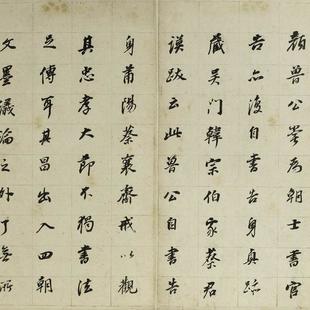 顏魯公嘗為朝士書官
告亦復自書告身真跡
藏吳門韓宗伯家蔡君
謨跋云此魯公自書告
身莆陽蔡襄齋戒以觀
其忠孝大節不獨書法
足傳耳其昌出入四朝
文墨議論之外了無所